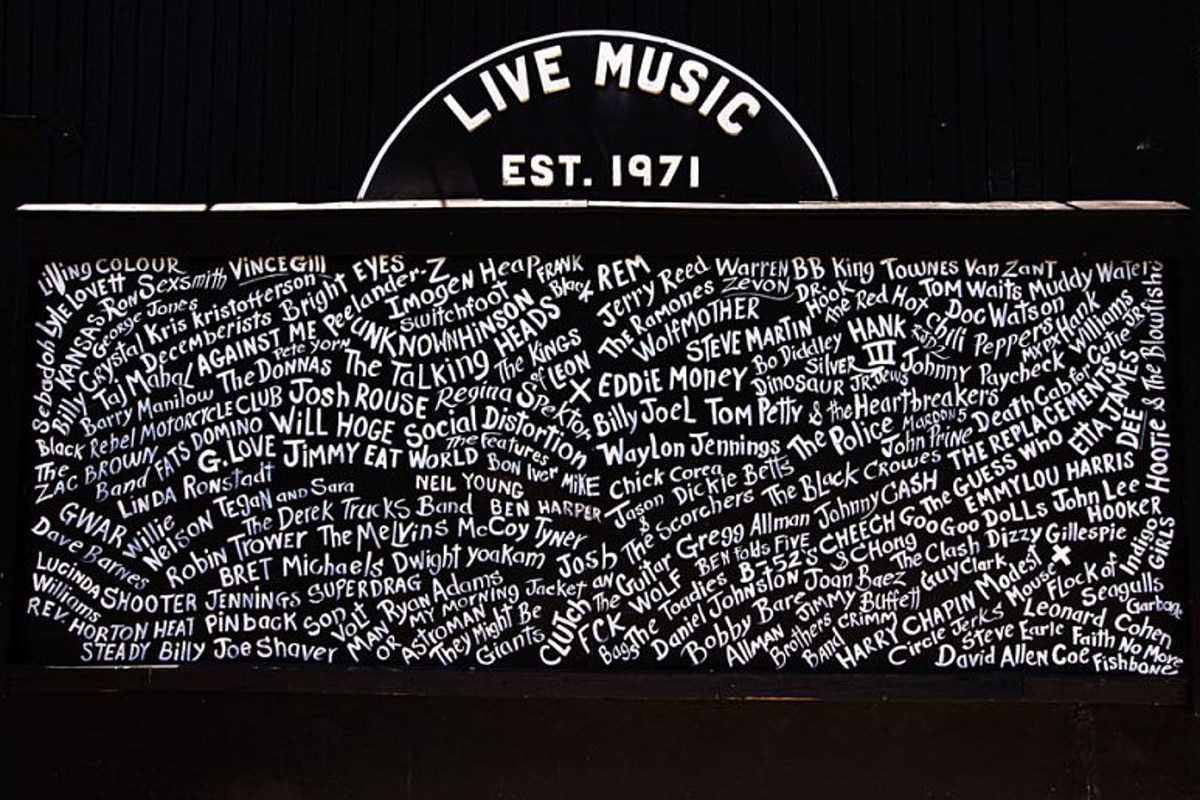 LIVE MUSIC
EST. 1971
Living COLOUR
VINCE Gill
EYES
Bright
Lyle Lovett
Ron Sexsmith
Sebadoh
KANSAS
George Jones
Kris Kristofferson
Peelander-Z
Imogen Heap
FRANK
Black
Billy
Crystal
Decemberists
Switchfoot
Taj Mahal
AGAINST ME
UNKNOWN HINSON
Pete Yorn
Barry Manilow
The DONNAS
The Talking HEADS
The KINGS
of LEON
Black Rebel MOTORCYCLE CLUB
Josh ROUSE
Regina Spektor
X
The
ZAC BROWN
Band
FATS DOMINO
WiLL HOGE
Social Distortion
G. LOVE
JIMMY EAT WORLD
The Features
Bon Iver
MIKE
LINDA Ronstadt
NEIL YOUNG
Tegan and Sara
GWAR
Willie
Nelson
The Derek Trucks Band
BEN HARPER
Dave Barnes
Robin Trower
The Melvins
McCoy Tyner
BRET Michaels
Dwight Yoakam
Josh
LUCINDA
Williams
SHOOTER JENNINGS
SUPERDRAG
Ryan Adams
MY MORNING Jacket
REV. HORTON HEAT
Pinback
Son Volt
MAN OR ASTROMAN
They Might Be
Giants
CLUTCH
STEADY
Billy Joe Shaver
REM
Jerry Reed
WARREN
ZEVON
BB King
TOWNES Van Zant
Muddy Waters
The Ramones
DR.
Hook
TOM Waits
WolfMOTHER
The Red Hot Chili Peppers
Doc Watson
STEVE MARTIN
HANK
III
RJD2
MXPX
Hank
Williams
JR.
Bo Diddley
Silver
Jews
EDDIE MONEY
Dinosaur JR.
Johnny Paycheck
Death Cab for Cutie
Billy Joel
Tom Petty & the Heartbreakers
Waylon Jennings
The Police
John Prine
THE REPLACEMENTS
ETTA JAMES
DEE
HOOTIE & The Blowfish
Chick Corea
Dickie Betts
The Black Crowes
The GUESS Who
EMMYLOU HARRIS
Jason
& The Scorchers
Johnny CASH
GooGoo DoLLs
John Lee
HOOKER
Gregg Allman
CHEECH
& CHong
The Clash
Dizzy Gillespie
Indigo
GIRLS
The Guitar
WOLF
BEN Folds FIVE
B-52's
Guy Clark
Modest
Mouse
X
FLock of
Seagulls
The Toadies
Daniel Johnston
Joan Baez
JIMMY Buffett
FCK
Bobby Bare
HARRY CHAPIN
Leonard Cohen
Garbage
ALLMAN
Brothers
Band
Circle Jerks
Steve Earle
Faith No More
David Allen Coe
Fishbone